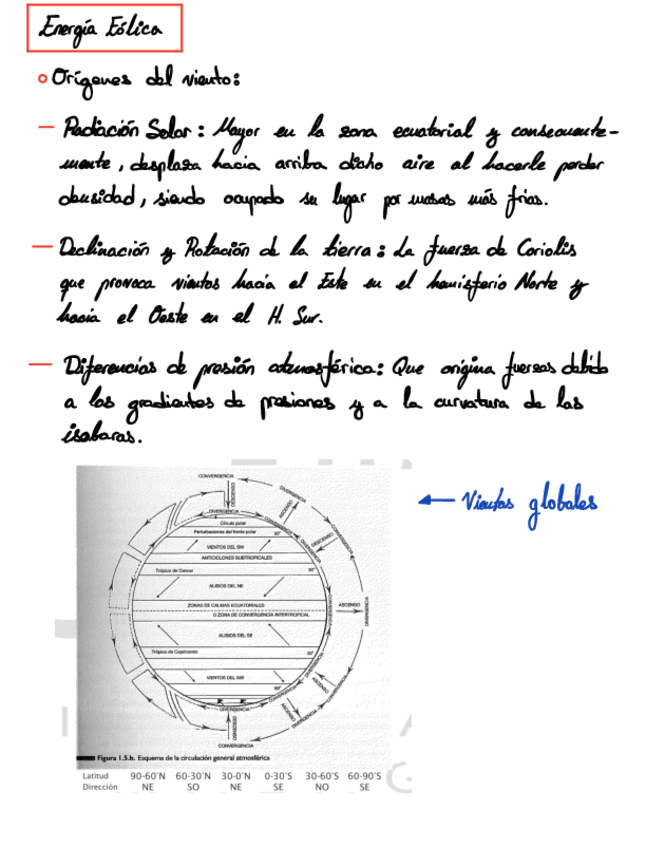 Energía Eólica
Orígenes del viento:
— Radiación Solar: Mayor en la zona ecuatorial y consecuente-
mente, desplaza hacia arriba dicho aire al hacerle perder
densidad, siendo ocupado su lugar por masas más frías.
— Declinación y Rotación de la tierra: La fuerza de Coriolis
que provoca vientos hacia el Este en el hemisferio Norte y
hacia el Oeste en el H. Sur.
— Diferencias de presión atmosférica: Que origina fuerzas debido
a los gradientes de presiones y a la curvatura de las
isobaras.
← Vientos globales
CONVERGENCIA
DIVERGENCIA
DESCENSO
ASCENSO
DIVERGENCIA
CONVERGENCIA
CONVERGENCIA
Círculo polar
Perturbaciones del frente polar
60°
DIVERGENCIA
DESCENSO
VIENTOS DEL SW
ANTICICLONES SUBTROPICALES
Trópico de Cancer
30°
ALISIOS DEL NE
ZONAS DE CALMAS ECUATORIALES
O ZONA DE CONVERGENCIA INTERTROPICAL
ASCENSO
DIVERGENCIA
CONVERGENCIA
ALISIOS DEL SE
Trópico de Capricornio
30°
VIENTOS DEL NW
60°
DIVERGENCIA
ASCENSO
CONVERGENCIA
ASCENSO
DIVERGENCIA
DIVERGENCIA
DESCENSO
CONVERGENCIA
Figura 1.5.b. Esquema de la circulación general atmosférica
Latitud 90-60°N 60-30°N 30-0°N 0-30°S 30-60°S 60-90°S
Dirección NE SO NE SE NO SE